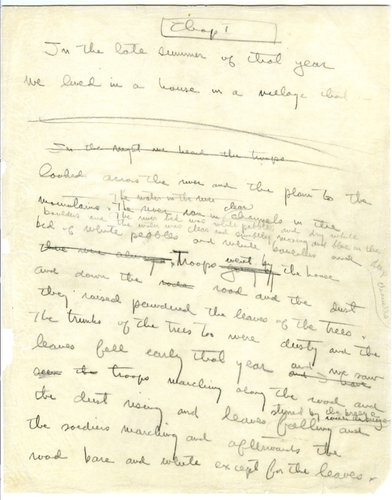 Chap I
In the late summer of that year
we lived in a house in a village that
In the night we heard the troops
looked across the river and the plain to the
The water in the river clear
mountains. The river ran in channels in the
boulders and the river bed was white pebbles and dry white
the water was clear and swiftly moving and blue in the
bed of white pebbles and white boulders and
Troops went by the house
and down the road road and the dust
they raised powdered the leaves of the trees.
The trunks of the trees too were dusty and the
leaves fell early that year and we saw
saw the troops marching along the road and
the dust rising and leaves falling and
stirred by the breeze
the soldiers marching and afterwards the
road bare and white except for the leaves.